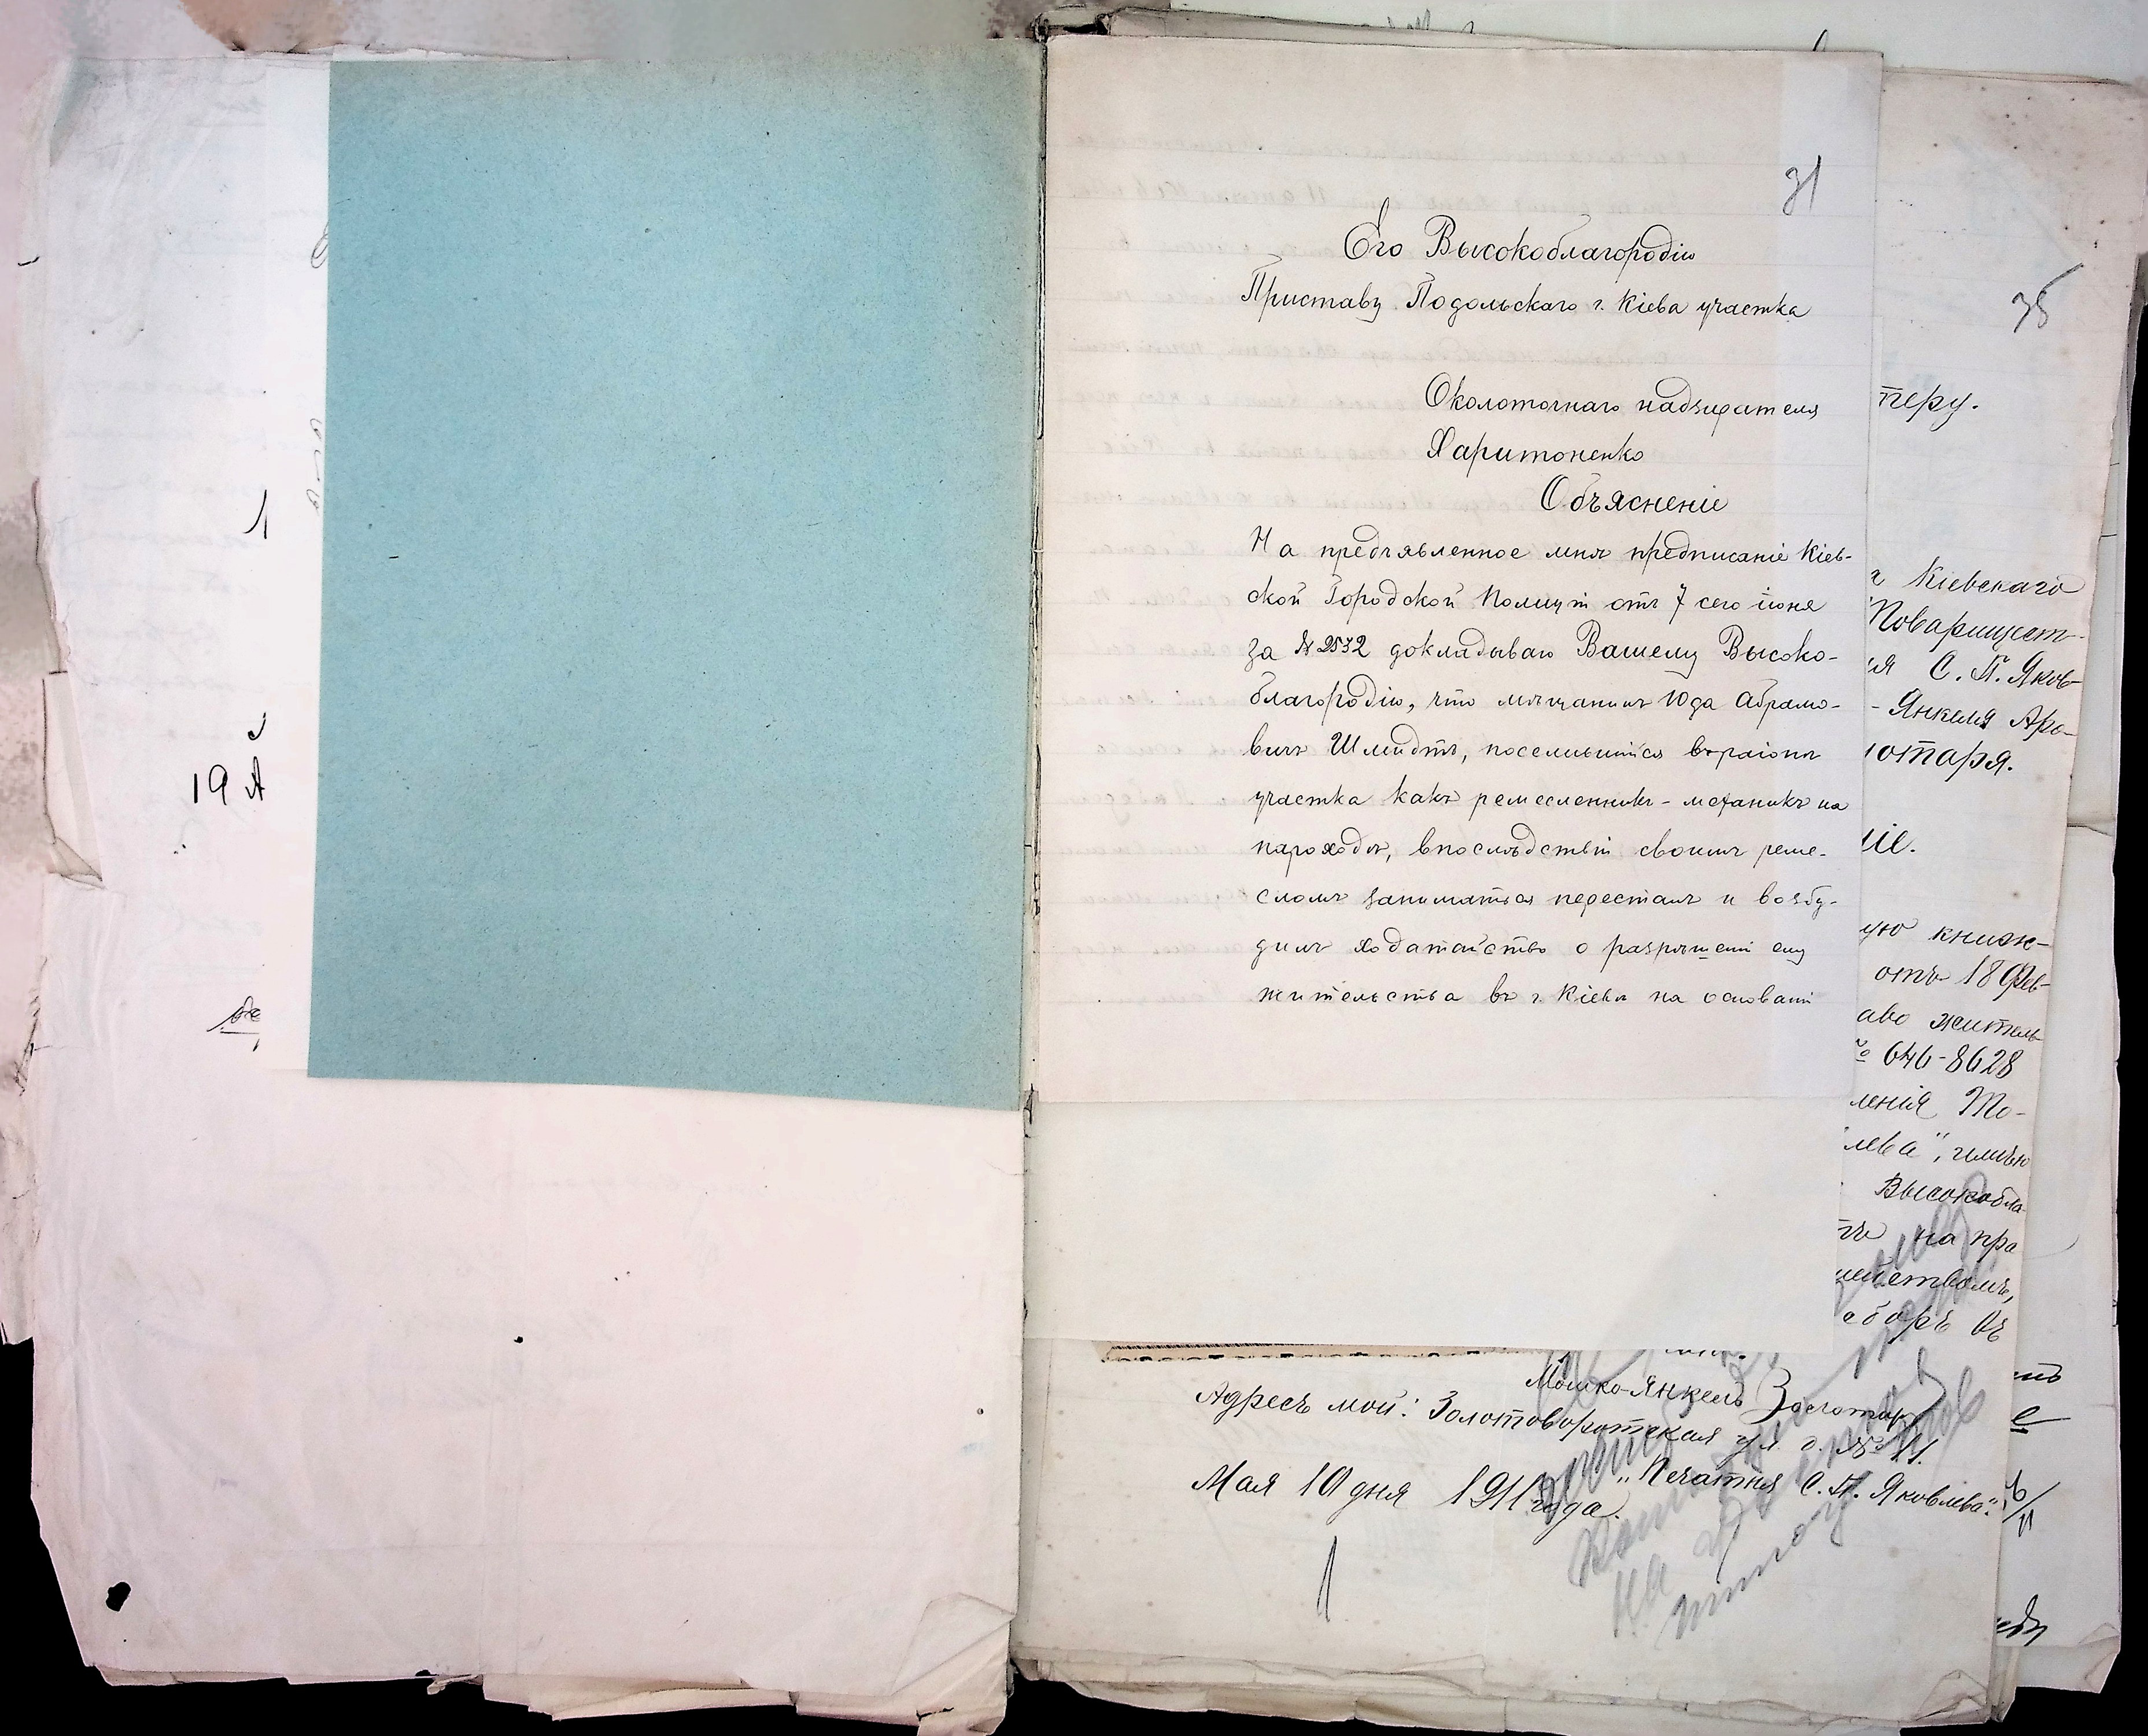 31
Его Высокоблагородію
Приставу Подольскаго г. Кіева участка
Околоточнаго надзирателя
Харитоненко
Объясненіе
На предъявленное мнѣ предписаніе Кіев-
ской Городской Полиціи отъ 7 сего іюня
за № 2532 докладываю Вашему Высоко-
благородію, что мѣщанинъ Юда Абрамо-
вичъ Шмидтъ, поселившійся въ раіонѣ
участка какъ ремесленникъ-механикъ на
пароходѣ, впослѣдствіи своимъ реме-
сломъ заниматься пересталъ и возбу-
дилъ ходатайство о разрѣшеніи ему
жительства въ г. Кіевѣ на основаніи
35
теру.
Кіевскаго
Товарищест-
ія С. П. Яков-
- Янкеля Аро-
лотаря.
ніе.
ую книж-
отъ 18 Фев-
аво житель-
№ 646-8628
ленія То-
лева", имѣю
Высокобла-
на пра
Мошко-Янкель Золотарь
Адресъ мой: Золотоворотская ул. д. № 11.
"Печатня С. П. Яковлева".
Мая 10 дня 1911 года.
19 А